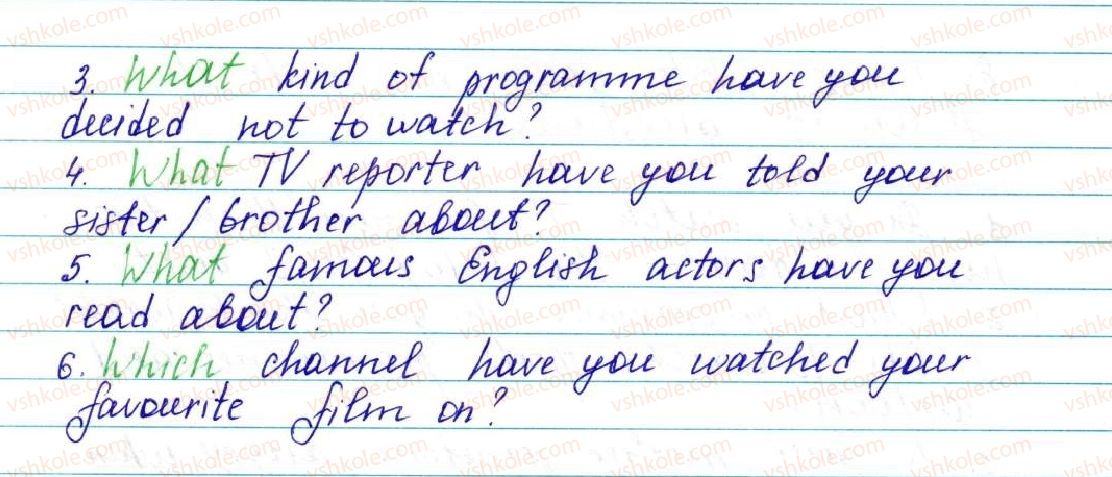 3. What kind of programme have you
decided not to watch?
4. What TV reporter have you told your
sister / brother about?
5. What famous English actors have you
read about?
6. Which channel have you watched your
favourite film on?
vshkole.com